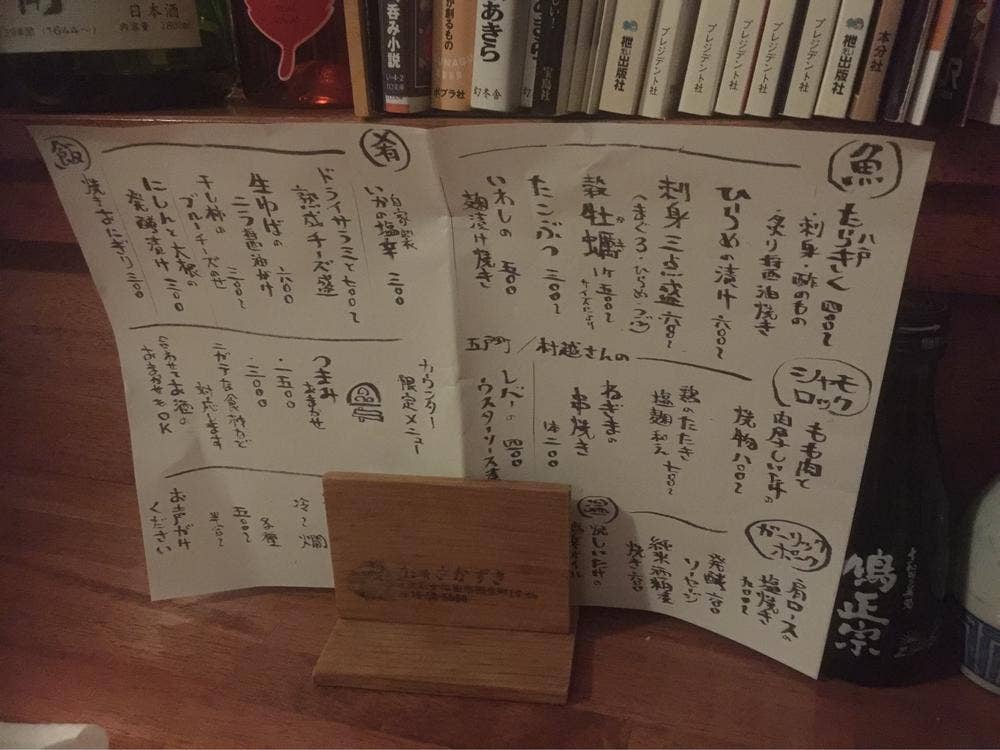 日本酒
呑み小説
が創るもの
ポプラ社
あきら
幻冬舎
枻出版社
プレジデント社
プレジデント社
プレジデント社
プレジデント社
枻出版社
本分社
魚
八戸
刺身・酢のもの
炙り醤油焼き
ひらめの漬け 六〇〇〜
刺身三点盛
殻牡蠣 1ケ 五〇〇〜
サイズにより
たこぶつ 三〇〇〜
いわしの 五〇〇
麹漬け焼き
五戸町/村越さんの
シャモロック
もも肉と
肉厚しいたけの
焼物 八〇〇〜
鶏のたたき
塩麹和え 七〇〇〜
ねぎまの
串焼き
レバーの 四〇〇
ウスターソース
ガーリックポーク
肩ロースの
塩焼き
発酵 六〇〇
ソーセージ
純米酒粕
焼き 六〇〇
肴
自家製
いかの塩辛 三〇〇
ドライサラミと 七〇〇〜
熟成チーズ盛
生ゆばの 六〇〇
ニラ醤油がけ
干し柿の 三〇〇〜
ブルーチーズのせ
にしんと大根の
発酵漬け 三〇〇
飯
焼きおにぎり 三〇〇
カウンター
限定メニュー
つまみ
おまかせ
・一五〇〇
・三〇〇〇
ニガテな食材など
対応します
合わせてお酒の
おまかせもOK
冷〜燗
各種
五〇〇〜
半合〜
お声がけ
ください
鳩正宗